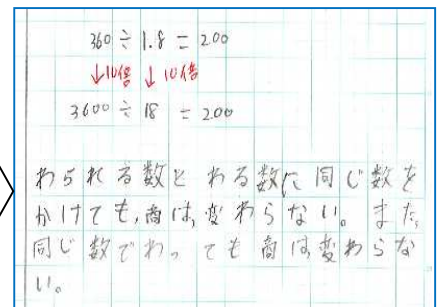 360 ÷ 1.8 = 200
↓10倍 ↓10倍
3600 ÷ 18 = 200
わられる数とわる数に同じ数を
かけても,商は,変わらない。また,
同じ数でわっても商は変わらな
い。